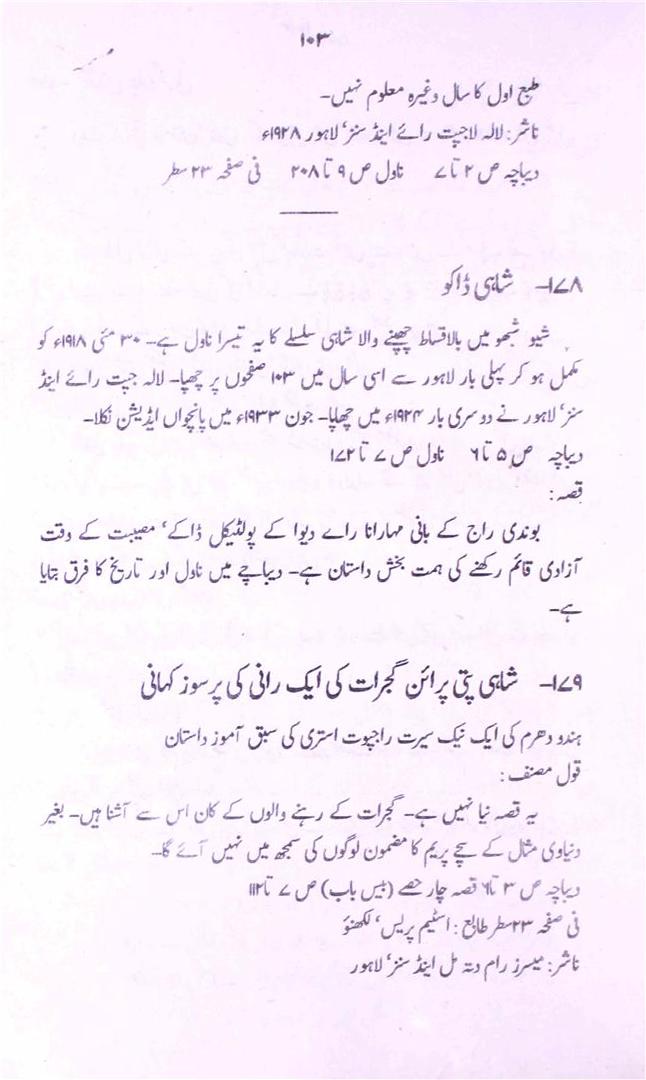 ۱۰۳
طبع اول کا سال وغیرہ معلوم نہیں۔
ناشر: لالہ لاجپت رائے اینڈ سنز، لاہور ۱۹۲۸ء
دیباچہ ص ۲ تا ۷ ناول ص ۹ تا ۲۰۸ فی صفحہ ۲۳ سطر
۱۷۸۔ شاہی ڈاکو
شیو شمبھو میں بالاقساط چھپنے والا شاہی سلسلے کا یہ تیسرا ناول ہے۔ ۳۰ مئی ۱۹۱۸ء کو
مکمل ہو کر پہلی بار لاہور سے اسی سال میں ۱۰۳ صفحوں پر چھپا۔ لالہ جپت رائے اینڈ
سنز، لاہور نے دوسری بار ۱۹۲۴ء میں چھاپا۔ جون ۱۹۳۳ء میں پانچواں ایڈیشن نکلا۔
دیباچہ ص ۵ تا ۶ ناول ص ۷ تا ۱۷۲
قصہ:
بوندی راج کے بانی مہارانا راے دیوا کے پولٹیکل ڈاکے، مصیبت کے وقت
آزادی قائم رکھنے کی ہمت بخش داستان ہے۔ دیباچے میں ناول اور تاریخ کا فرق بتایا
ہے۔
۱۷۹۔ شاہی پتی پرائن گجرات کی ایک رانی کی پرسوز کہانی
ہندو دھرم کی ایک نیک سیرت راجپوت استری کی سبق آموز داستان
قول مصنف:
یہ قصہ نیا نہیں ہے۔ گجرات کے رہنے والوں کے کان اس سے آشنا ہیں۔ بغیر
دنیاوی مثال کے سچے پریم کا مضمون لوگوں کی سمجھ میں نہیں آئے گا۔
دیباچہ ص ۳ تا ۶ قصہ چار حصے (بیس باب) ص ۷ تا ۱۱۲
فی صفحہ ۲۳ سطر طابع: اسٹیم پریس، لکھنؤ
ناشر: میسرز رام دتہ مل اینڈ سنز، لاہور